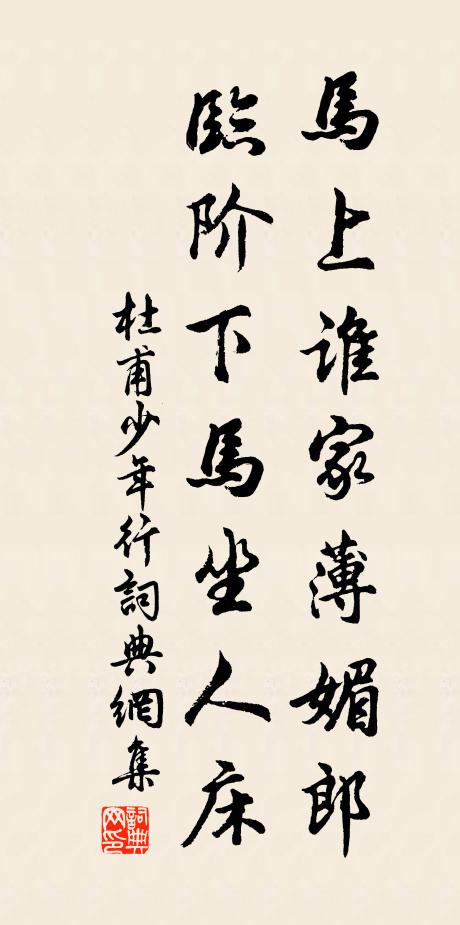 馬上誰家薄媚郎
臨阶下馬坐人床
杜甫少年行詞典網集
詞典
网印